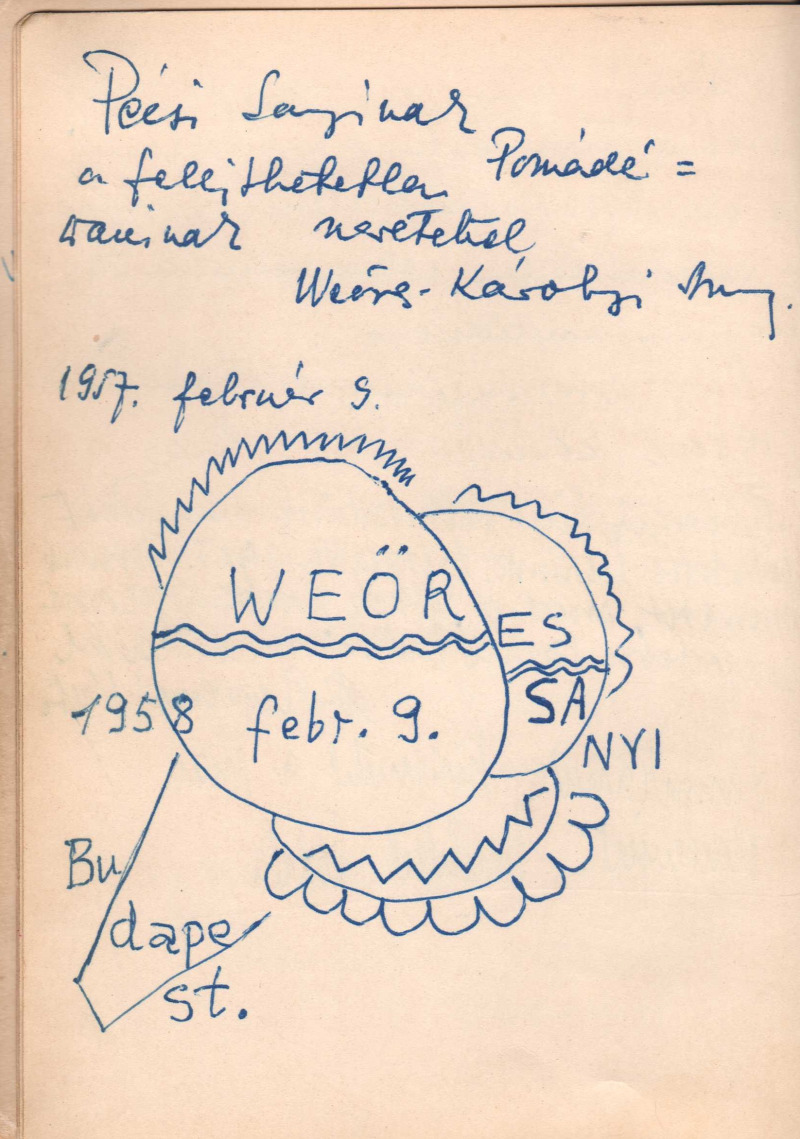 Pécsi Sanyinak
a felejthetetlen Pomádé=
kacinak szeretettel
Weöres-Károlyi Amy.
1957. február 9.
WEÖR
ES
SA
1958 febr. 9.
NYI
Bu
dape
st.